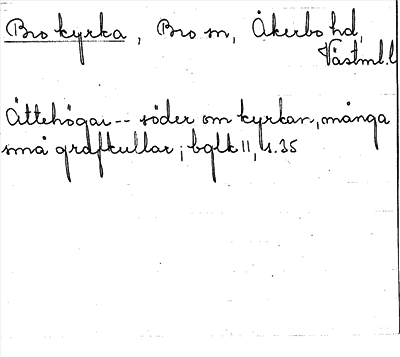 Bro kyrka, Bro sn, Åkerbo hd,
Västml. l
Ättehögar -- söder om kyrkan, många
små grafkullar; bglk II, s. 35